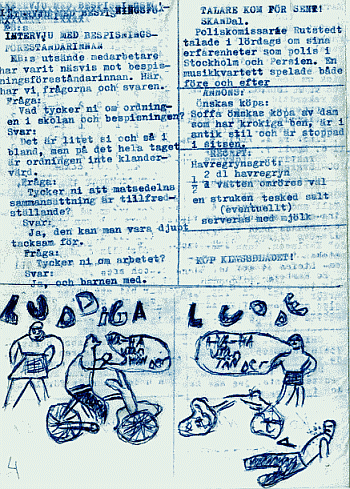 INTERVJU MED BESPISNINGS-
FÖRESTÅNDARINNAN
KB:s utsände medarbetare
har varit näsvis mot bespis-
ningsföreståndarinnan. Här
har vi frågorna och svaren.
Fråga:
Vad tycker ni om ordning-
en i skolan och bespisningen?
Svar:
Det är litet si och så i
bland, men på det hela taget
är ordningen inte klander-
värd.
Fråga:
Tycker ni att matsedelns
sammansättning är tillfred-
ställande?
Svar:
Ja, den kan man vara djupt
tacksam för.
Fråga:
Tycker ni om arbetet?
Svar:
Ja, och barnen med.
TALARE KOM FÖR SENT!
SKANDAL.
Poliskomissarie Rutstedt
talade i lördags om sina
erfarenheter som polis i
Stockholm och Persien. En
musikkvartett spelade både
före och efter
ANNONS:
Önskas köpa:
Soffa önskas köpa av dam
som har krokiga ben, är i
antik stil och är stoppad
i sitsen.
RECEPT:
Havregrynsgröt:
2 dl havregryn
1/2 l vatten omröres väl
en struken tesked salt
(eventuellt)
serveras med mjölk
KÖP KLASSBLADET!
LUDDIGA LUDDE
HA-HA
HA-HA
4